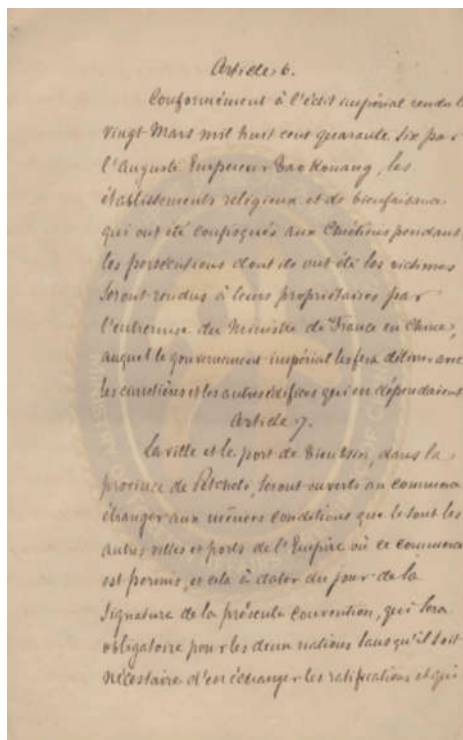 Article 6.
Conformément à l'édit impérial rendu le
vingt Mars mil huit cent quarante six par
l'Auguste Empereur Tao Kouang, les
établissements religieux et de bienfaisance
qui ont été confisqués aux Chrétiens pendant
les persécutions dont ils ont été les victimes
seront rendus à leurs propriétaires par
l'entremise du Ministre de France en Chine,
auquel le gouvernement impérial les fera délivrer avec
les cimetières et les autres édifices qui en dépendaient
Article 7.
La ville et le port de Tien Tsin, dans la
province de Petcheli, seront ouverts au commerce
étranger aux mêmes conditions que le sont les
autres villes et ports de l'Empire où ce commerce
est permis, et cela à dater du jour de la
signature de la présente convention, qui sera
obligatoire pour les deux nations sans qu'il soit
nécessaire d'en échanger les ratifications et qui